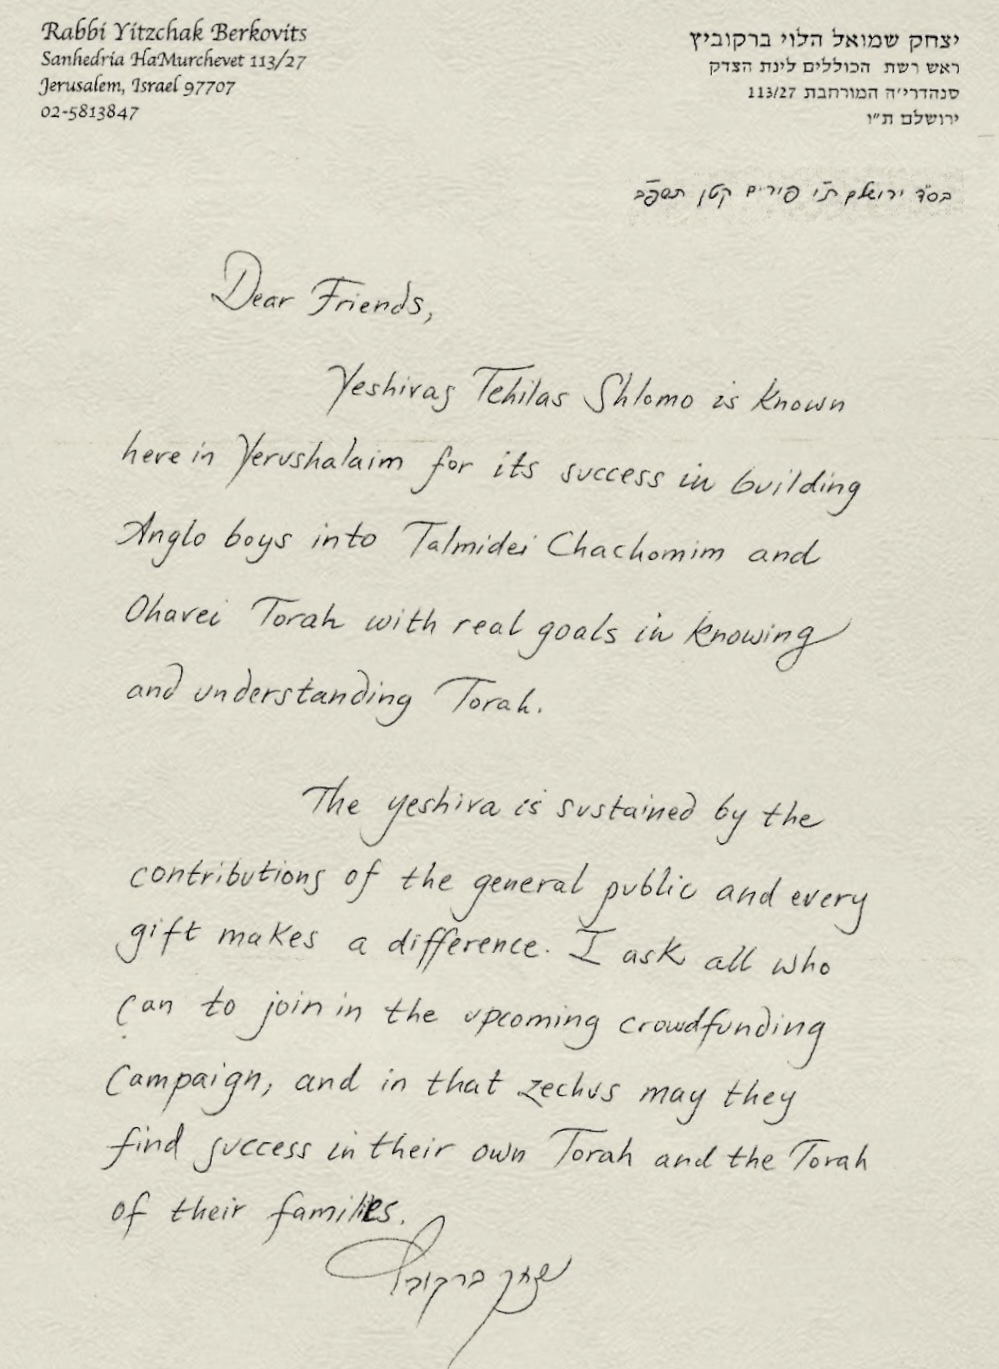 Rabbi Yitzchak Berkovits
Sanhedria HaMurchevet 113/27
Jerusalem, Israel 97707
02-5813847
יצחק שמואל הלוי ברקוביץ
ראש רשת הכוללים לינת הצדק
סנהדרי״ה המורחבת 113/27
ירושלם ת״ו
בס"ד ירושלם ת"ו פורים קטן תשפ"ב
Dear Friends,
Yeshivas Tehilas Shlomo is known
here in Yerushalaim for its success in building
Anglo boys into Talmidei Chachomim and
Ohavei Torah with real goals in knowing
and understanding Torah.
The yeshiva is sustained by the
contributions of the general public and every
gift makes a difference. I ask all who
can to join in the upcoming crowdfunding
campaign, and in that zechus may they
find success in their own Torah and the Torah
of their families.
יצחק ברקוביץ